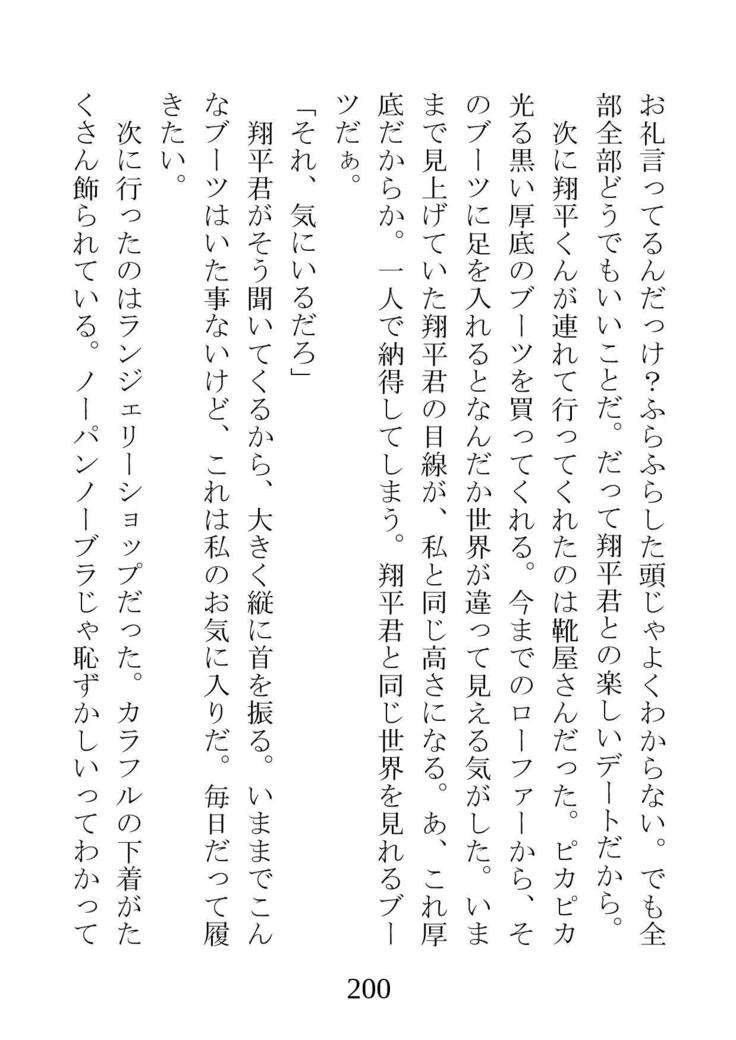 お礼言ってるんだっけ？ふらふらした頭じゃよくわからない。でも全
部全部どうでもいいことだ。だって翔平君との楽しいデートだから。
　次に翔平くんが連れて行ってくれたのは靴屋さんだった。ピカピカ
光る黒い厚底のブーツを買ってくれる。今までのローファーから、そ
のブーツに足を入れるとなんだか世界が違って見える気がした。いま
まで見上げていた翔平君の目線が、私と同じ高さになる。あ、これ厚
底だからか。一人で納得してしまう。翔平君と同じ世界を見れるブー
ツだぁ。
「それ、気にいるだろ」
　翔平君がそう聞いてくるから、大きく縦に首を振る。いままでこん
なブーツはいた事ないけど、これは私のお気に入りだ。毎日だって履
きたい。
　次に行ったのはランジェリーショップだった。カラフルの下着がた
くさん飾られている。ノーパンノーブラじゃ恥ずかしいってわかって
200